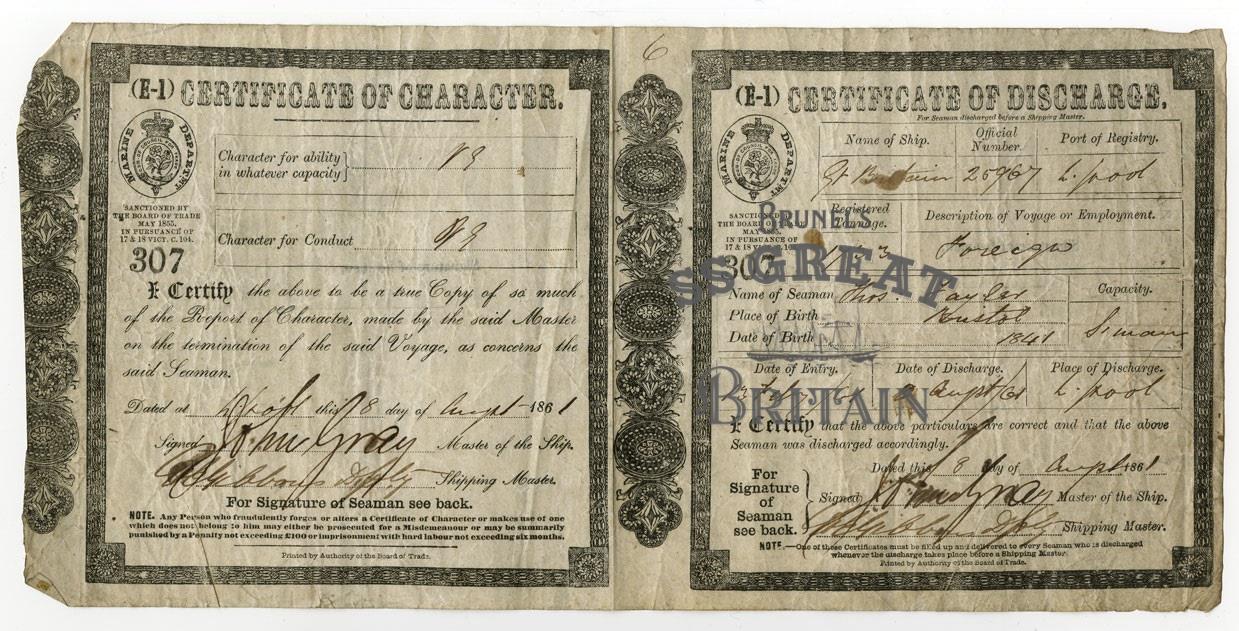 6
(E-1) CERTIFICATE OF CHARACTER.
MARINE DEPARTMENT
SANCTIONED BY
THE BOARD OF TRADE
MAY 1855.
IN PURSUANCE OF
17 & 18 VICT. C. 104.
307
Character for ability
in whatever capacity} V G
Character for Conduct V G
I Certify the above to be a true Copy of so much
of the Report of Character, made by the said Master
on the termination of the said Voyage, as concerns the
said Seaman.
Dated at L'pool this 8 day of August 1861
Signed John Gray Master of the Ship.
Shipping Master.
For Signature of Seaman see back.
NOTE. Any Person who fraudulently forges or alters a Certificate of Character or makes use of one
which does not belong to him may either be prosecuted for a Misdemeanour or may be summarily
punished by a Penalty not exceeding £100 or imprisonment with hard labour not exceeding six months.
Printed by Authority of the Board of Trade.
(E-1) CERTIFICATE OF DISCHARGE.
For Seaman discharged before a Shipping Master.
MARINE DEPARTMENT
SANCTIONED BY
THE BOARD OF TRADE
MAY 1855.
IN PURSUANCE OF
17 & 18 VICT. C. 104.
307
Name of Ship. Official Number. Port of Registry.
Gt Britain 25967 L.pool
Registered Tonnage. Description of Voyage or Employment.
Foreign
Name of Seaman Thos. Tayler Capacity.
Place of Birth Bristol
Date of Birth 1841 S.man
Date of Entry. Date of Discharge. Place of Discharge.
Feb 61 August/61 L.pool
I Certify that the above particulars are correct and that the above
Seaman was discharged accordingly.
Dated this 8 day of August 1861
For Signature of Seaman see back.
Signed John Gray Master of the Ship.
Shipping Master.
NOTE.—One of these Certificates must be filled up and delivered to every Seaman who is discharged
whenever the discharge takes place before a Shipping Master.
Printed by Authority of the Board of Trade.
BRUNEL'S
SS GREAT
BRITAIN